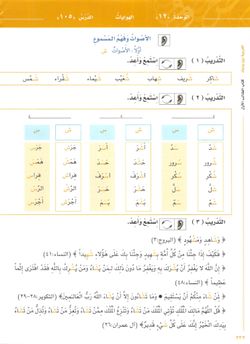 الوحدة «١٢» الهوايات الدرس «١٠٥»
الأصوات وفهم المسموع
أولًا: الأصوات ش
التدريب ( ١ ) استمع وأعد.
شاكر شريف شهاب شعيب شيماء شقراء شمس
التدريب ( ٢ ) استمع وأعد.
س ش س ش س ش
جرس جرش أسر أشر سد شد
همس همش سرور شرور
سر شر
سل شل
التدريب ( ٣ ) استمع وأعد.
﴿ وَشَاهِدٍ وَمَشْهُودٍ ﴾ (البروج:٣)
﴿ فَكَيْفَ إِذَا جِئْنَا مِنْ كُلِّ أُمَّةٍ بِشَهِيدٍ وَجِئْنَا بِكَ عَلَى هَؤُلَاءِ شَهِيدًا ﴾ (النساء:٤١)
﴿ إِنَّ اللَّهَ لَا يَغْفِرُ أَنْ يُشْرَكَ بِهِ وَيَغْفِرُ مَا دُونَ ذَلِكَ لِمَنْ يَشَاءُ وَمَنْ يُشْرِكْ بِاللَّهِ فَقَدِ افْتَرَى إِثْمًا
عَظِيمًا ﴾ (النساء:٤٨)
﴿ لِمَنْ شَاءَ مِنْكُمْ أَنْ يَسْتَقِيمَ ۝ وَمَا تَشَاءُونَ إِلَّا أَنْ يَشَاءَ اللَّهُ رَبُّ الْعَالَمِينَ ﴾ (التكوير:٢٨-٢٩)
﴿ قُلِ اللَّهُمَّ مَالِكَ الْمُلْكِ تُؤْتِي الْمُلْكَ مَنْ تَشَاءُ وَتَنْزِعُ الْمُلْكَ مِمَّنْ تَشَاءُ وَتُعِزُّ مَنْ تَشَاءُ وَتُذِلُّ مَنْ تَشَاءُ
بِيَدِكَ الْخَيْرُ إِنَّكَ عَلَى كُلِّ شَيْءٍ قَدِيرٌ ﴾ (آل عمران:٢٦)